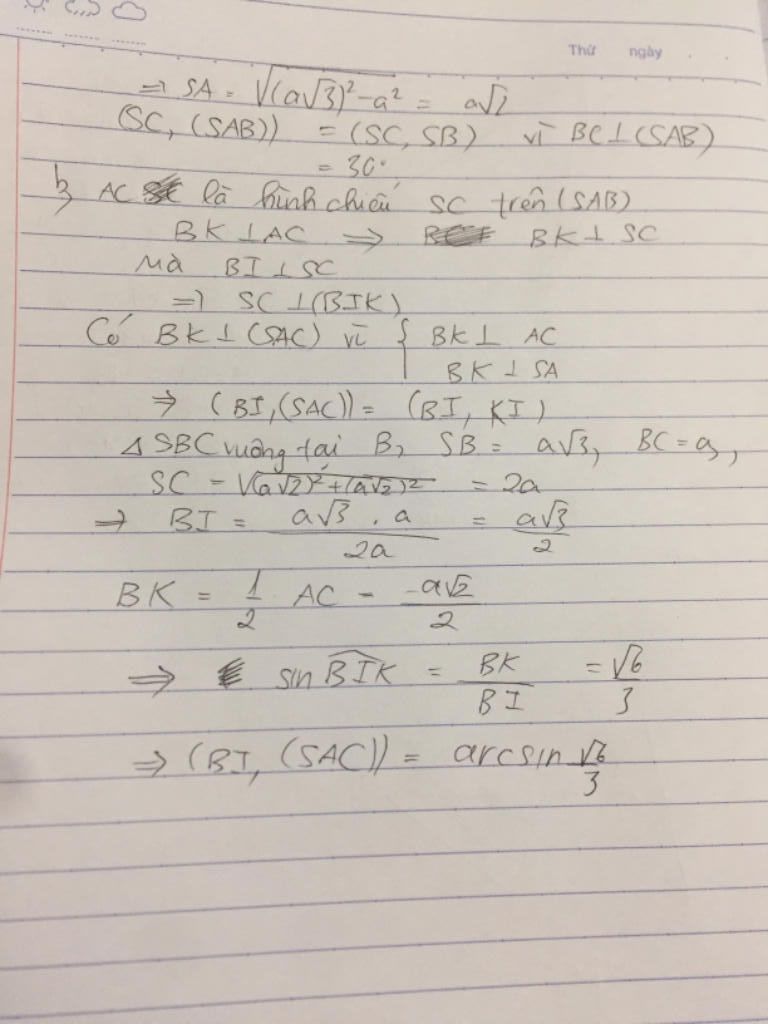 Thứ ngày
⇒ SA = √((a√3)² - a²) = a√2
(SC, (SAB)) = (SC, SB) vì BC ⊥ (SAB)
= 30°
b, AC là hình chiếu SC trên (SAB)
BK ⊥ AC ⇒ BK ⊥ SC
Mà BI ⊥ SC
⇒ SC ⊥ (BIK)
Có BK ⊥ (SAC) vì { BK ⊥ AC
BK ⊥ SA
⇒ (BI, (SAC)) = (BI, KI)
Δ SBC vuông tại B, SB = a√3, BC = a,
SC = √((a√2)² + (a√2)²) = 2a
⇒ BI = (a√3 . a)/(2a) = (a√3)/2
BK = 1/2 AC = (a√2)/2
⇒ sin BIK = BK/BI = √6/3
⇒ (BI, (SAC)) = arcsin √6/3